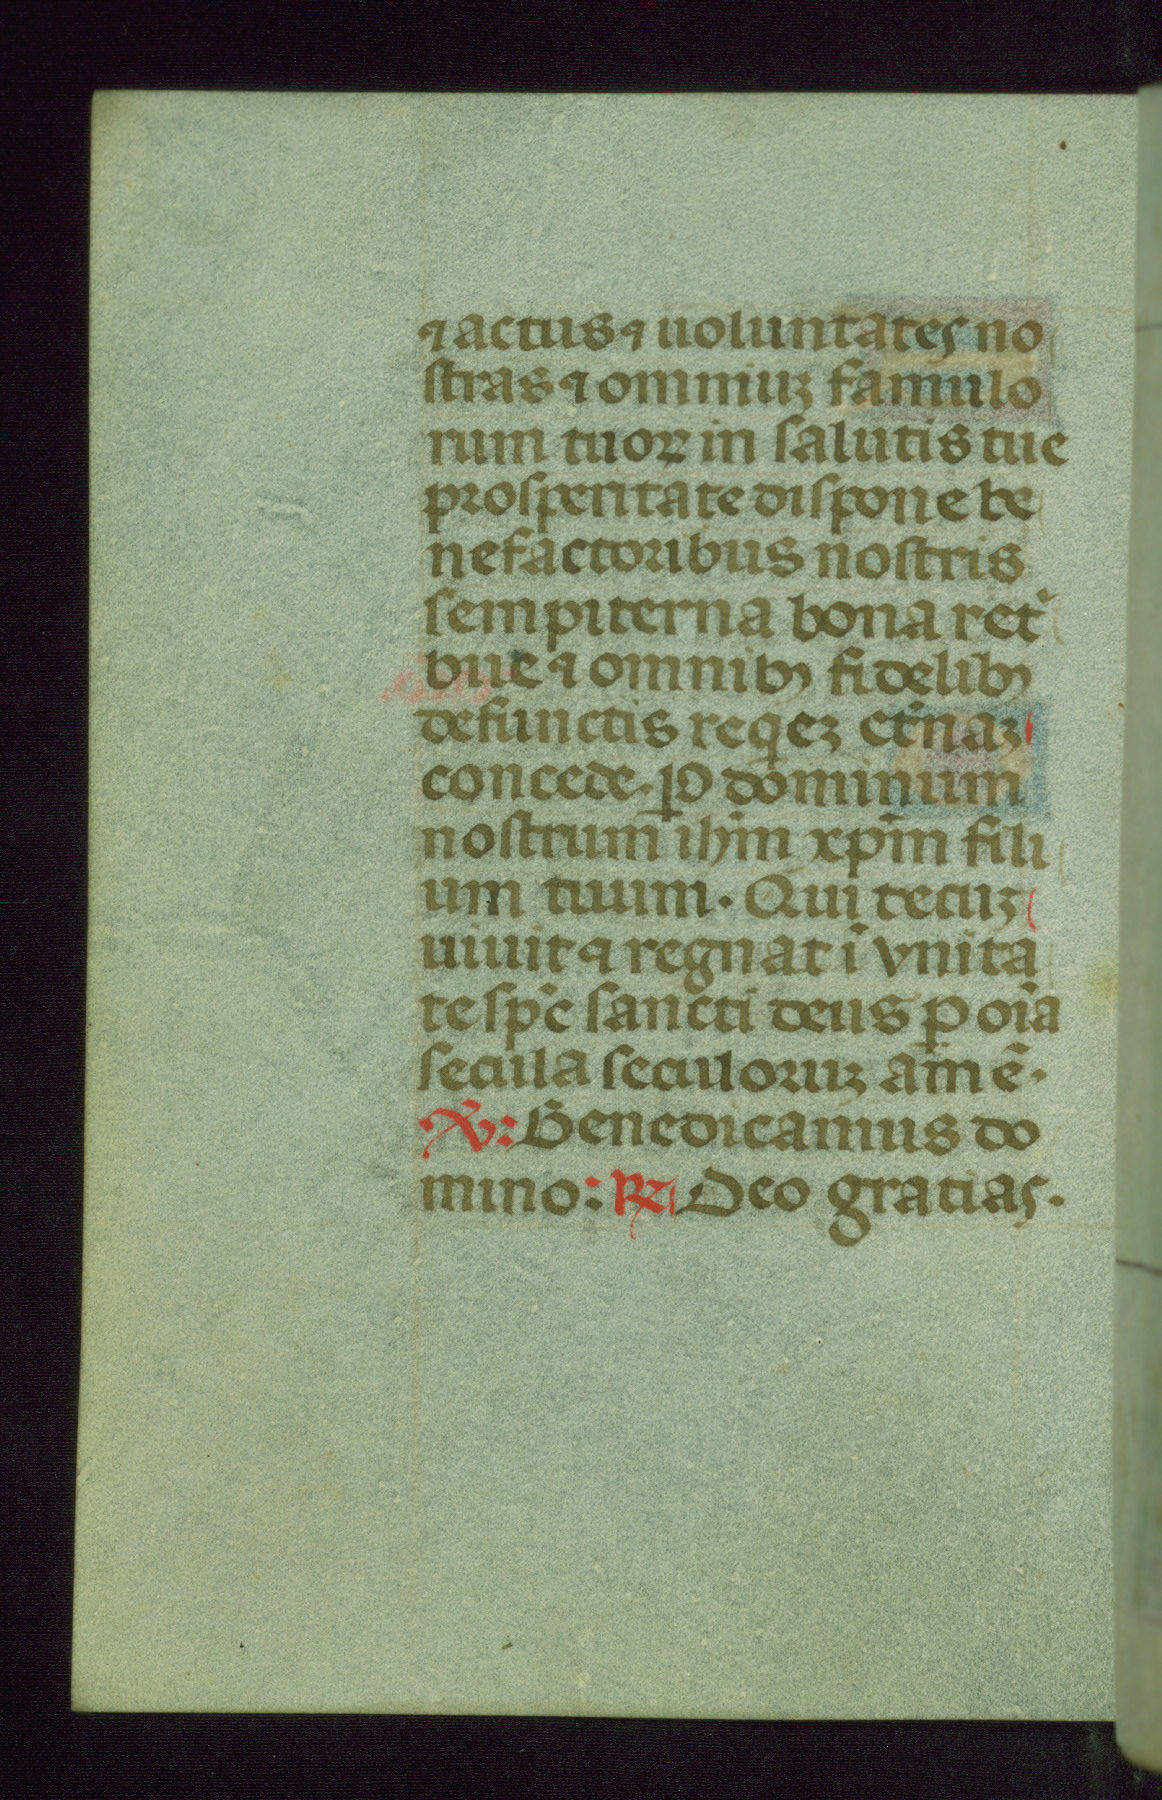 ⁊ actus ⁊ uoluntates no
stras ⁊ omniuꝫ famulo
rum tuoꝝ in salutis tue
prosperitate dispone be
nefactoribus nostris
sempiterna bona retⁱ
bue ⁊ omnibꝰ fidelibꝰ
defunctis reqⁱeꝫ et̃naꝫ
concede. P̲ dominum
nostrum ihm̃ xpm̃ fili
um tuum. Qui tecuꝫ
uiuit ⁊ regnat ĩ vnita
te sp̃c sancti deus ꝑ oĩa
secula seculoruꝫ am̃ẽ.
℣: Benedicamus do
mino: ℟ Deo gratias.